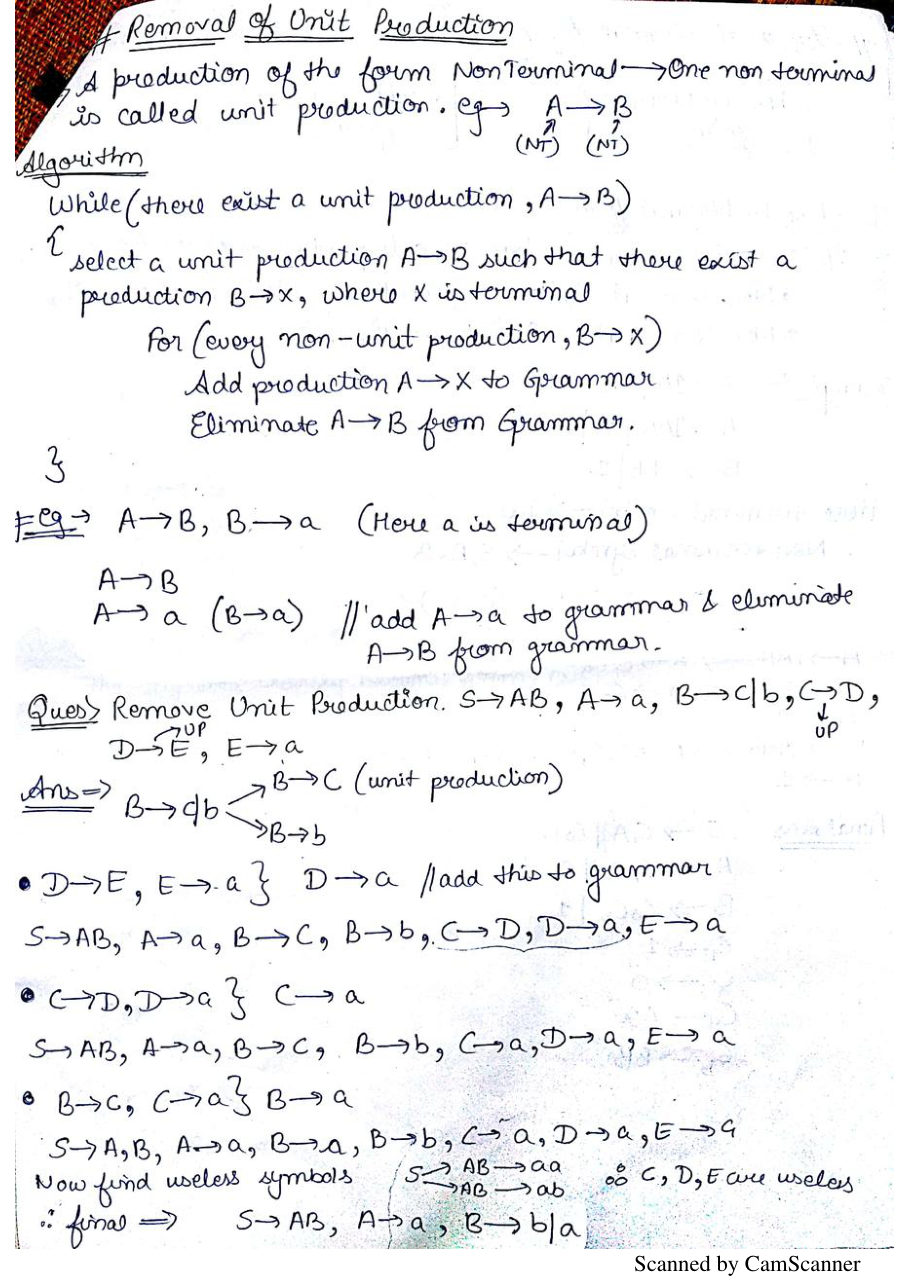 # Removal of Unit Production
→ A production of the form NonTerminal → One non terminal
is called unit production. eg → A → B
(NT) (NT)
Algorithm
While (there exist a unit production, A → B)
{
select a unit production A → B such that there exist a
production B → x, where x is terminal
For (every non-unit production, B → x)
Add production A → x to Grammar
Eliminate A → B from Grammar.
}
# eg → A → B, B → a (Here a is terminal)
A → B
A → a (B → a) // add A → a to grammar & eliminate
A → B from grammar.
Ques> Remove Unit Production. S → AB, A → a, B → C|b, C → D,
UP
UP
D → E, E → a
Ans => B → C|b
B → C (unit production)
B → b
• D → E, E → a } D → a // add this to grammar
S → AB, A → a, B → C, B → b, C → D, D → a, E → a
• C → D, D → a } C → a
S → AB, A → a, B → C, B → b, C → a, D → a, E → a
• B → C, C → a } B → a
S → A,B, A → a, B → a, B → b, C → a, D → a, E → a
Now find useless symbols S → AB → aa
→ AB → ab
∴ C, D, E are useless
∴ final => S → AB, A → a, B → b|a
Scanned by CamScanner